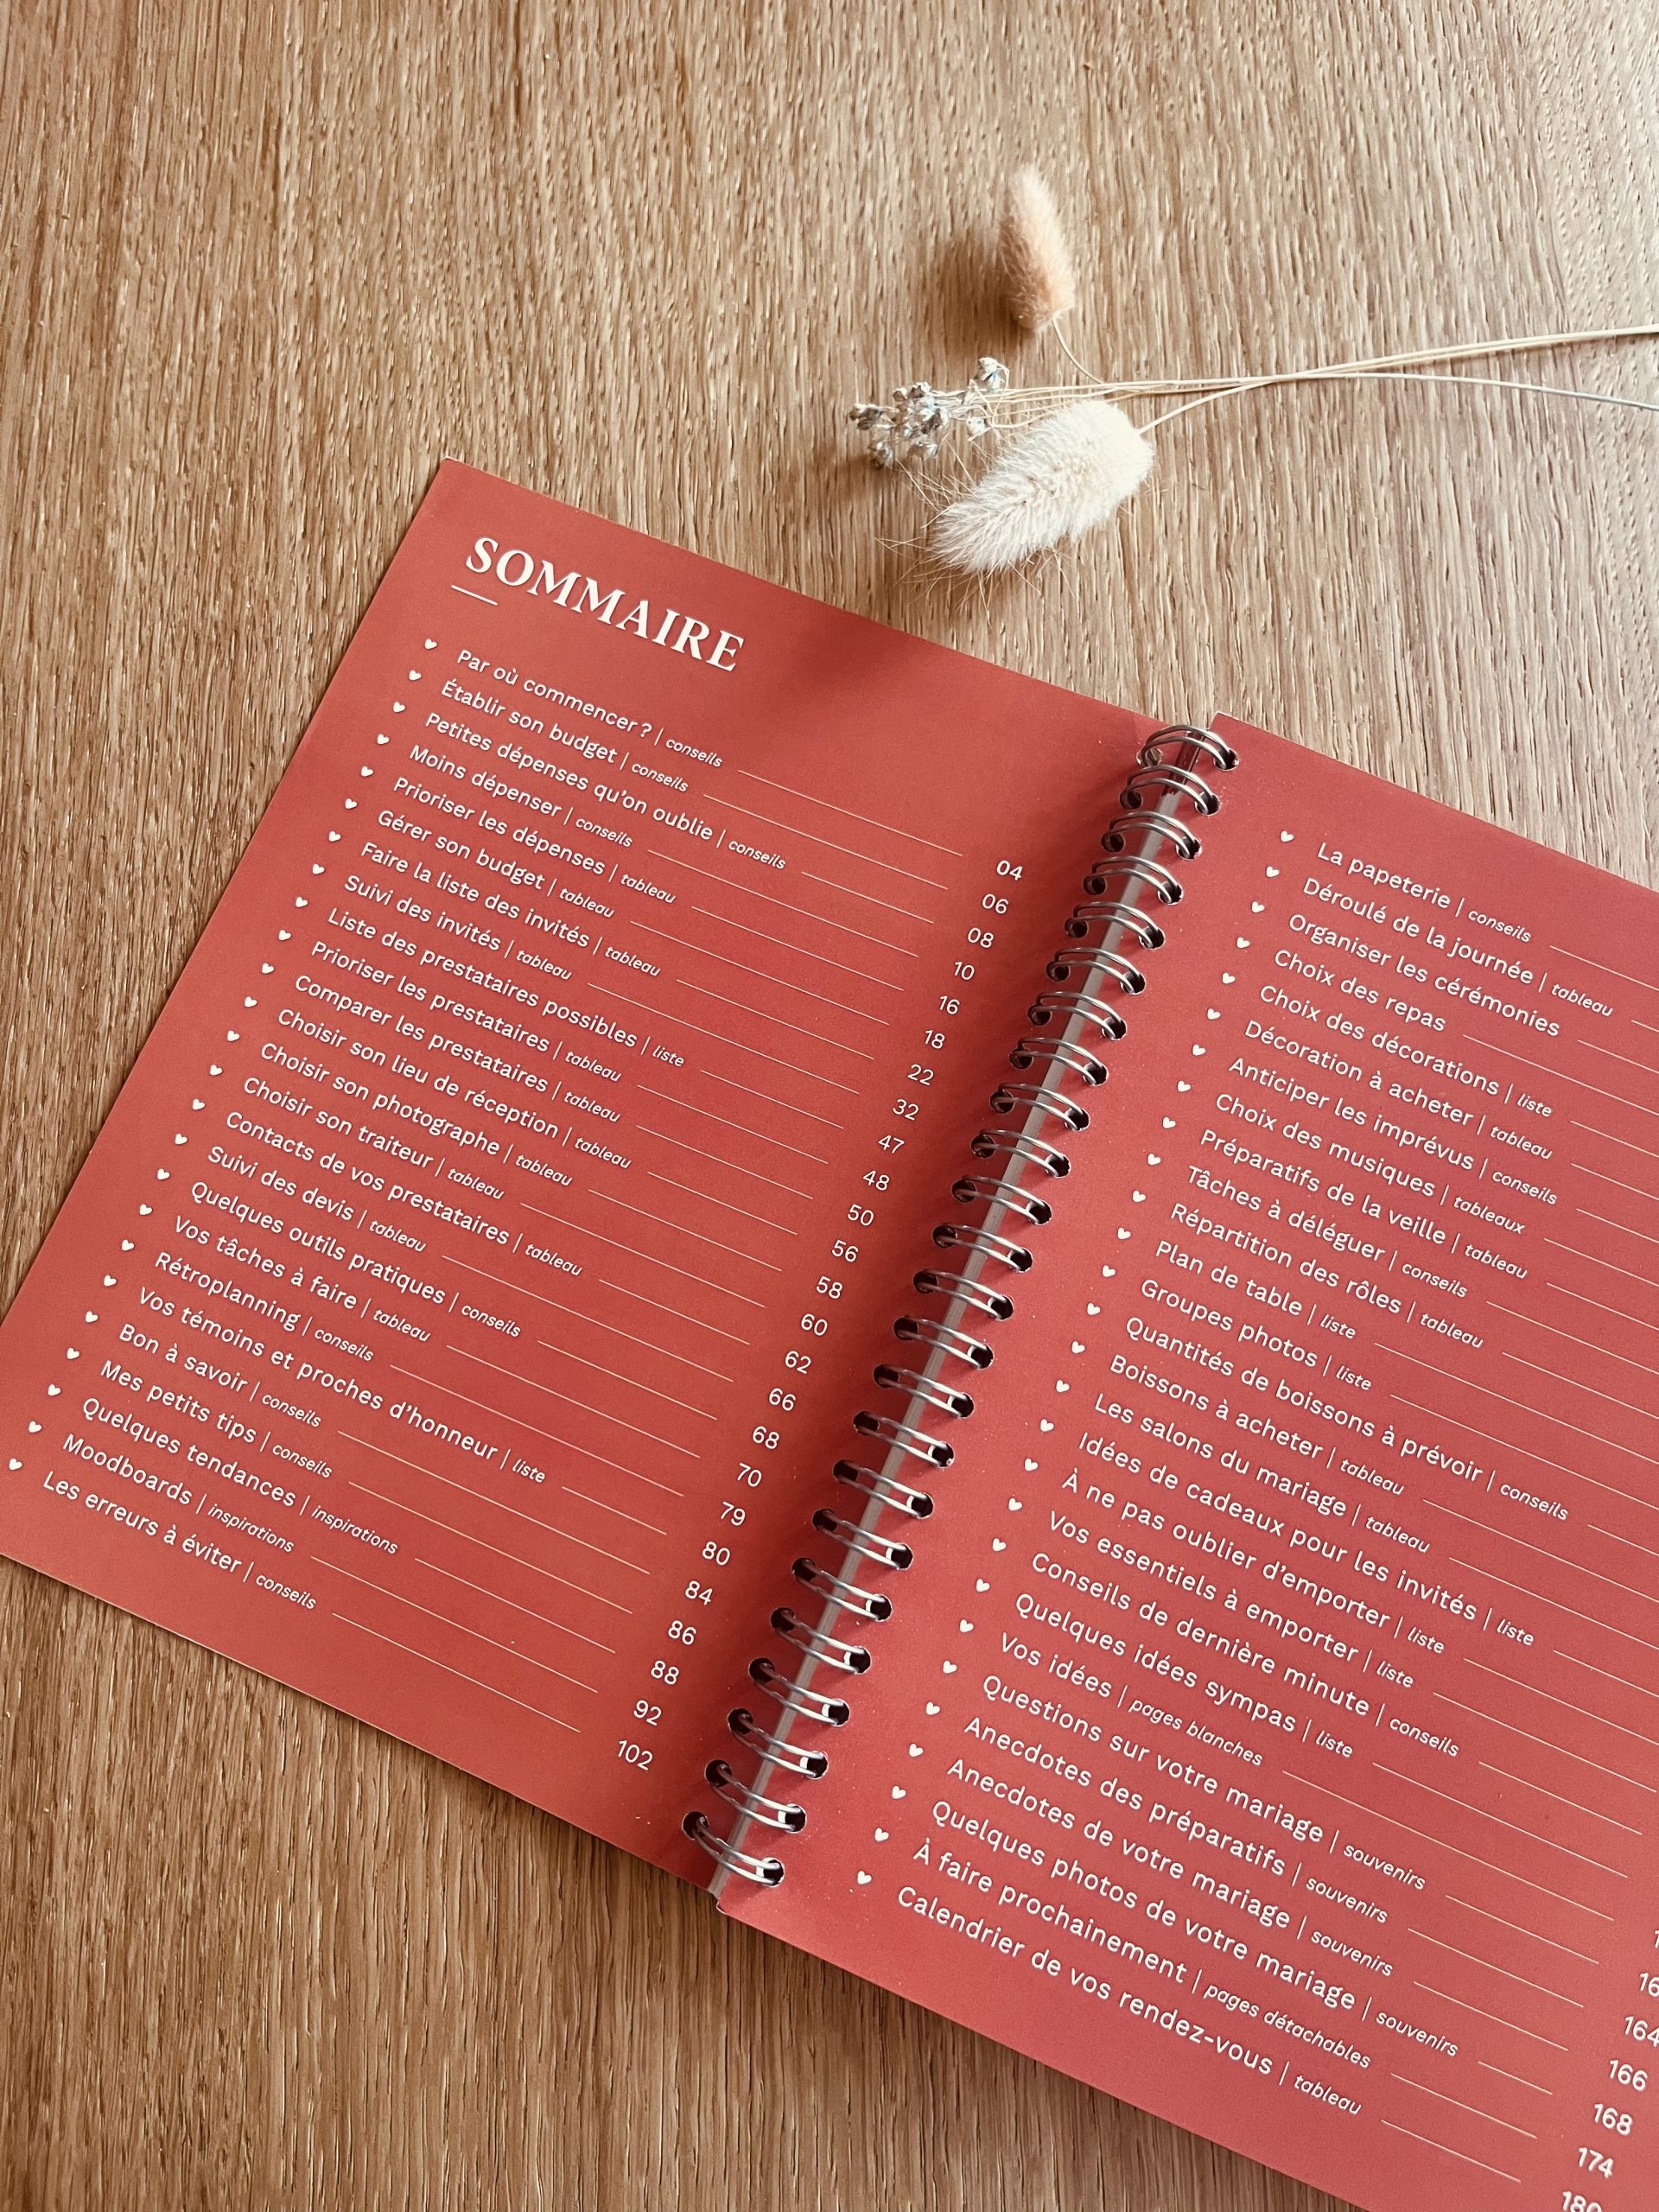 SOMMAIRE
Par où commencer ? | conseils 04
Établir son budget | conseils 06
Petites dépenses qu'on oublie | conseils 08
Moins dépenser | conseils 10
Prioriser les dépenses | tableau 16
Gérer son budget | tableau 18
Faire la liste des invités | tableau 22
Suivi des invités | tableau 32
Liste des prestataires possibles | liste 47
Prioriser les prestataires | tableau 48
Comparer les prestataires | tableau 50
Choisir son lieu de réception | tableau 56
Choisir son photographe | tableau 58
Choisir son traiteur | tableau 60
Contacts de vos prestataires | tableau 62
Suivi des devis | tableau 66
Quelques outils pratiques | conseils 68
Vos tâches à faire | tableau 70
Rétroplanning | conseils 79
Vos témoins et proches d'honneur | liste 80
Bon à savoir | conseils 84
Mes petits tips | conseils 86
Quelques tendances | inspirations 88
Moodboards | inspirations 92
Les erreurs à éviter | conseils 102
La papeterie | conseils
Déroulé de la journée | tableau
Organiser les cérémonies
Choix des repas
Choix des décorations | liste
Décoration à acheter | tableau
Anticiper les imprévus | conseils
Choix des musiques | tableaux
Préparatifs de la veille | tableau
Tâches à déléguer | conseils
Répartition des rôles | tableau
Plan de table | liste
Groupes photos | liste
Quantités de boissons à prévoir | conseils
Boissons à acheter | tableau
Les salons du mariage | tableau
Idées de cadeaux pour les invités | liste
À ne pas oublier d'emporter | liste
Vos essentiels à emporter | liste
Conseils de dernière minute | conseils
Quelques idées sympas | liste
Vos idées | pages blanches
Questions sur votre mariage | souvenirs
Anecdotes des préparatifs | souvenirs 164
Anecdotes de votre mariage | souvenirs 166
Quelques photos de votre mariage | souvenirs 168
À faire prochainement | pages détachables 174
Calendrier de vos rendez-vous | tableau 180